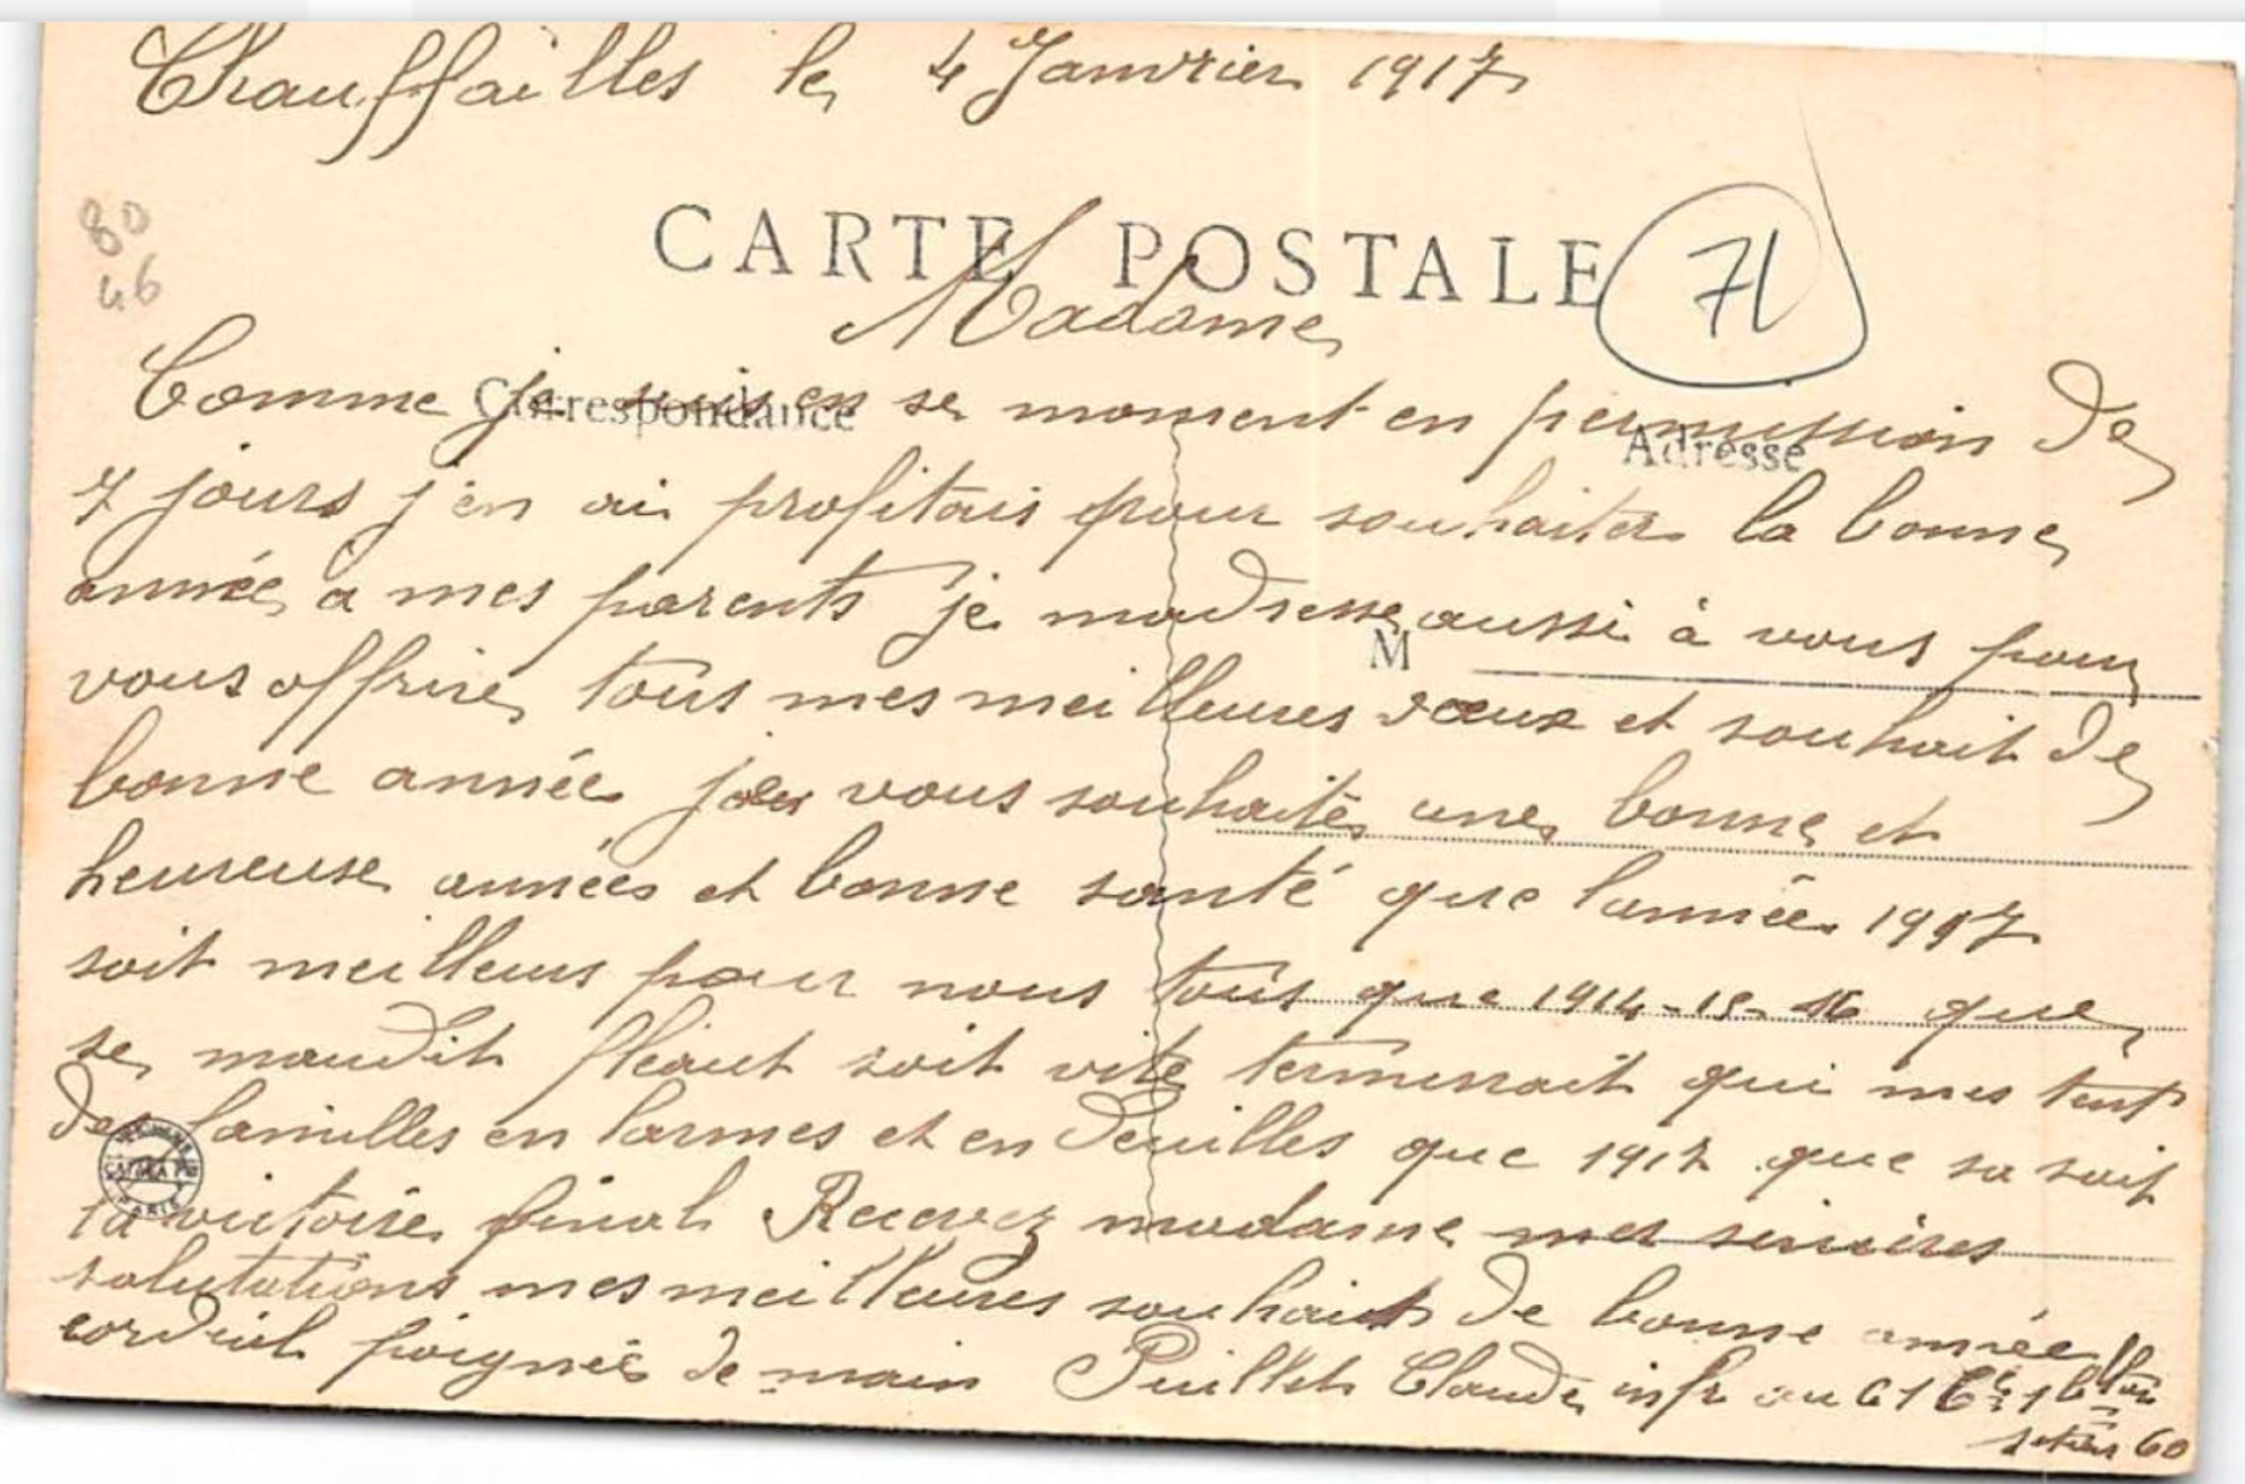 Chauffailles le 4 Janvier 1917
80
46
CARTE POSTALE
71
Madame
Correspondance
Adresse
Comme je suis en se moment en permission de
7 jours j'en ai profitais pour souhaiter la bonne
année à mes parents je madresse aussi à vous pour
M
vous offrire tous mes meilleures vœux et souhait de
bonne année je vous souhaites une bonne et
heureuse années et bonne santé que lannée 1917
soit meilleurs pour nous tous que 1914-15-16 que
se maudit fléaut soit vite terminait qui mes tent
de familles en larmes et en deuilles que 1917 que sa soit
PARIS
la victoire final Recevez madame mes sincères
salutations mes meilleures souhait de bonne année
cordial poignée de main Puillet Claude infr au 61
60